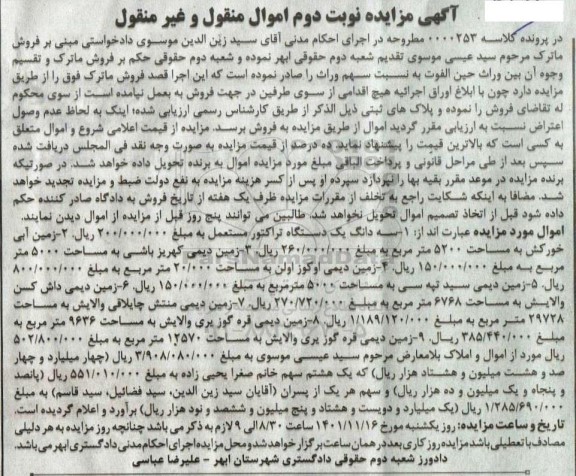 آگهی مزایده نوبت دوم اموال منقول و غیر منقول
در پرونده کلاسه ۰۰۰۰۲۵۳ مطروحه در اجرای احکام مدنی آقای سید زین الدین موسوی دادخواستی مبنی بر فروش
ماترک مرحوم سید عیسی موسوی تقدیم شعبه دوم حقوقی ابهر نموده و شعبه دوم حقوقی حکم بر فروش ماترک و تقسیم
وجوه آن بین وراث حین الفوت به نسبت سهم وراث را صادر نموده است که این اجرا قصد فروش ماترک فوق را از طریق
مزایده دارد چون با ابلاغ اوراق اجرائیه هیچ اقدامی از سوی طرفین در جهت فروش به بعمل نیامده است از سوی محکوم
له تقاضای فروش را نموده و پلاک های ثبتی ذیل الذکر از طریق کارشناس رسمی ارزیابی شده؛ اینک به لحاظ عدم وصول
اعتراض نسبت به ارزیابی مقرر گردید اموال از طریق مزایده به فروش برسد. مزایده از قیمت اعلامی شروع و اموال متعلق
به کسی است که بالاترین قیمت را پیشنهاد نماید ده درصد از قیمت مزایده به صورت وجه نقد فی المجلس دریافت شده
سپس بعد از طی مراحل قانونی و پرداخت الباقی مبلغ مورد مزایده اموال به برنده تحویل داده خواهد شد. در صورتیکه
برنده مزایده در موعد مقرر بقیه بها را نپردازد سپرده او پس از کسر هزینه مزایده به نفع دولت ضبط و مزایده تجدید خواهد
شد. مضافا به اینکه شکایت راجع به تخلف از مقررات مزایده ظرف یک هفته از تاریخ فروش به دادگاه صادر کننده حکم
داده شود قبل از اتخاذ تصمیم اموال تحویل نخواهد شد. طالبین می توانند پنج روز قبل از مزایده از اموال دیدن نمایند.
اموال مورد مزایده عبارت اند از: ۱-سه دانگ یک دستگاه تراکتور مستعمل به مبلغ ۲۰۰/۰۰۰/۰۰۰ ریال. ۲-زمین آبی
خورکش به مساحت ۵۲۰۰ متر مربع به مبلغ ۲۶۰/۰۰۰/۰۰۰ ریال. ۳-زمین دیمی کهریز باشی به مساحت ۵۰۰۰ متر
مربع به مبلغ ۱۵۰/۰۰۰/۰۰۰ ریال. ۴-زمین دیمی اوکوز اولن به مساحت ۲۰/۰۰۰ متر مربع به مبلغ ۸۰۰/۰۰۰/۰۰۰
ریال. ۵-زمین دیمی سید تپه سی به مساحت ۵۰۰۰ مترمربع به مبلغ ۱۵۰/۰۰۰/۰۰۰ ریال. ۶-زمین دیمی داش کسن
والایش به مساحت ۶۷۶۸ متر مربع به مبلغ ۲۷۰/۷۲۰/۰۰۰ ریال. ۷-زمین دیمی منتش چایلاقی والایش به مساحت
۲۹۷۲۸ متر مربع به مبلغ ۱/۱۸۹/۱۲۰/۰۰۰ ریال. ۸-زمین دیمی قره گوز یری والایش به مساحت ۹۶۳۶ متر مربع به
مبلغ ۳۸۵/۴۴۰/۰۰۰ ریال. ۹-زمین دیمی قره گوز یری والایش به مساحت ۱۲۵۷۰ متر مربع به مبلغ ۵۰۲/۸۰۰/۰۰۰
ریال مورد از اموال و املاک بلامعارض مرحوم سید عیسی موسوی به مبلغ ۳/۹۰۸/۰۸۰/۰۰۰ ریال (چهار میلیارد و چهار
صد و هشت میلیون و هشتاد هزار ریال) که یک هشتم سهم خانم صغرا یحیی زاده به مبلغ ۵۵۱/۰۱۰/۰۰۰ ریال (پانصد
و پنجاه و یک میلیون و ده هزار ریال) و سهم هر یک از پسران (آقایان سید زین الدین، سید فضائیل، سید قاسم) به مبلغ
۱/۲۸۵/۶۹۰/۰۰۰ ریال (یک میلیارد و دویست و هشتاد و پنج میلیون و ششصد و نود هزار ریال) برآورد و اعلام گردیده است.
تاریخ و ساعت مزایده: روز یکشنبه مورخ ۱۴۰۱/۱۱/۱۶ ساعت ۸/۳۰ الی ۹ لازم به ذکر می باشد چنانچه روز مزایده به هر دلیلی
مصادف با تعطیلی باشد مزایده روز کاری بعد در همان ساعت برگزار خواهد شد و محل مزایده اجرای احکام مدنی دادگستری ابهر می باشد.
دادورز شعبه دوم حقوقی دادگستری شهرستان ابهر - علیرضا عباسی